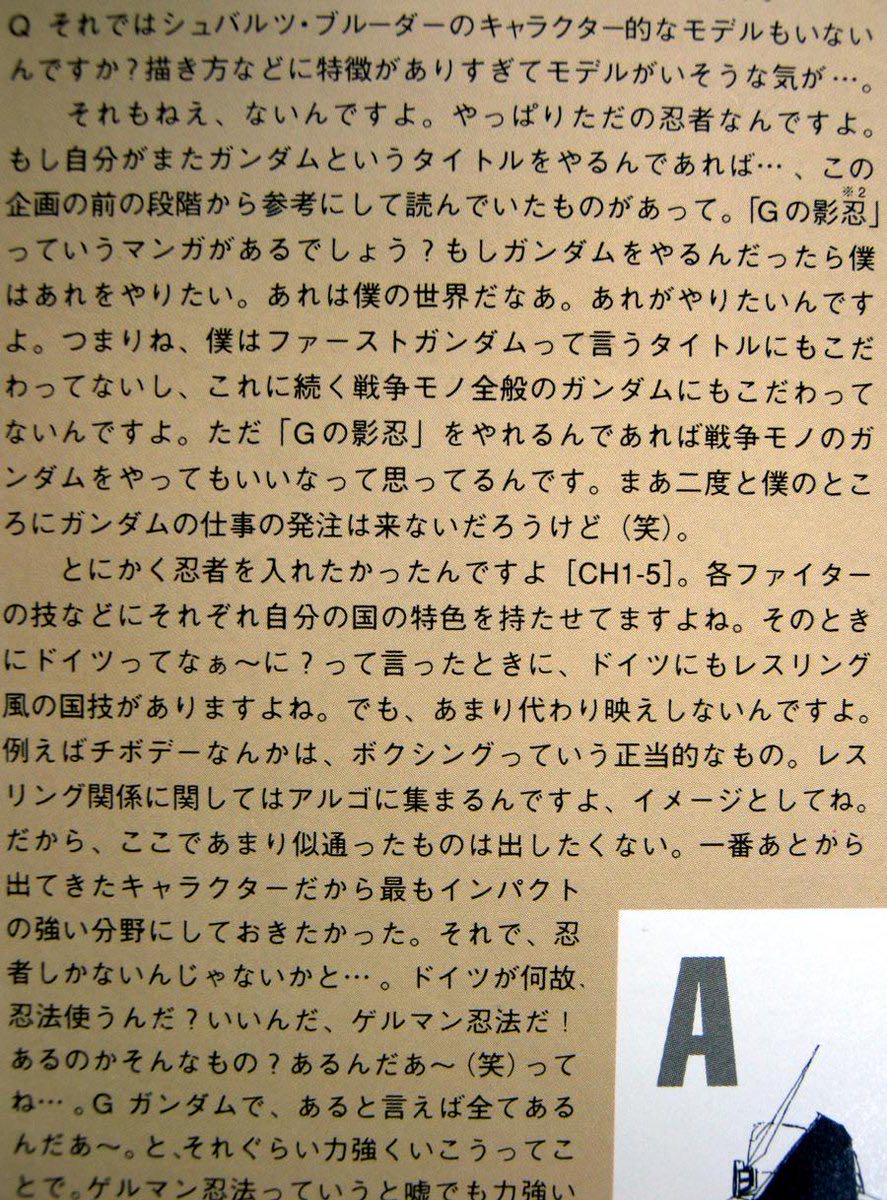 Q それではシュバルツ・ブルーダーのキャラクター的なモデルもいない
んですか？描き方などに特徴がありすぎてモデルがいそうな気が…。
それもねえ、ないんですよ。やっぱりただの忍者なんですよ。
もし自分がまたガンダムというタイトルをやるんであれば…、この
※2
企画の前の段階から参考にして読んでいたものがあって。「Gの影忍」
っていうマンガがあるでしょう？もしガンダムをやるんだったら僕
はあれをやりたい。あれは僕の世界だなあ。あれがやりたいんです
よ。つまりね、僕はファーストガンダムって言うタイトルにもこだ
わってないし、これに続く戦争モノ全般のガンダムにもこだわって
ないんですよ。ただ「Gの影忍」をやれるんであれば戦争モノのガ
ンダムをやってもいいなって思ってるんです。まあ二度と僕のとこ
ろにガンダムの仕事の発注は来ないだろうけど（笑）。
とにかく忍者を入れたかったんですよ［CH1-5］。各ファイター
の技などにそれぞれ自分の国の特色を持たせてますよね。そのとき
にドイツってなぁ～に？って言ったときに、ドイツにもレスリング
風の国技がありますよね。でも、あまり代わり映えしないんですよ。
例えばチボデーなんかは、ボクシングっていう正当的なもの。レス
リング関係に関してはアルゴに集まるんですよ、イメージとしてね。
だから、ここであまり似通ったものは出したくない。一番あとから
出てきたキャラクターだから最もインパクト
の強い分野にしておきたかった。それで、忍
者しかないんじゃないかと…。ドイツが何故、
忍法使うんだ？いいんだ、ゲルマン忍法だ！
あるのかそんなもの？あるんだあ～（笑）って
ね…。G ガンダムで、あると言えば全てある
んだあ～。と、それぐらい力強くいこうってこ
とで。ゲルマン忍法っていうと嘘でも力強い
A